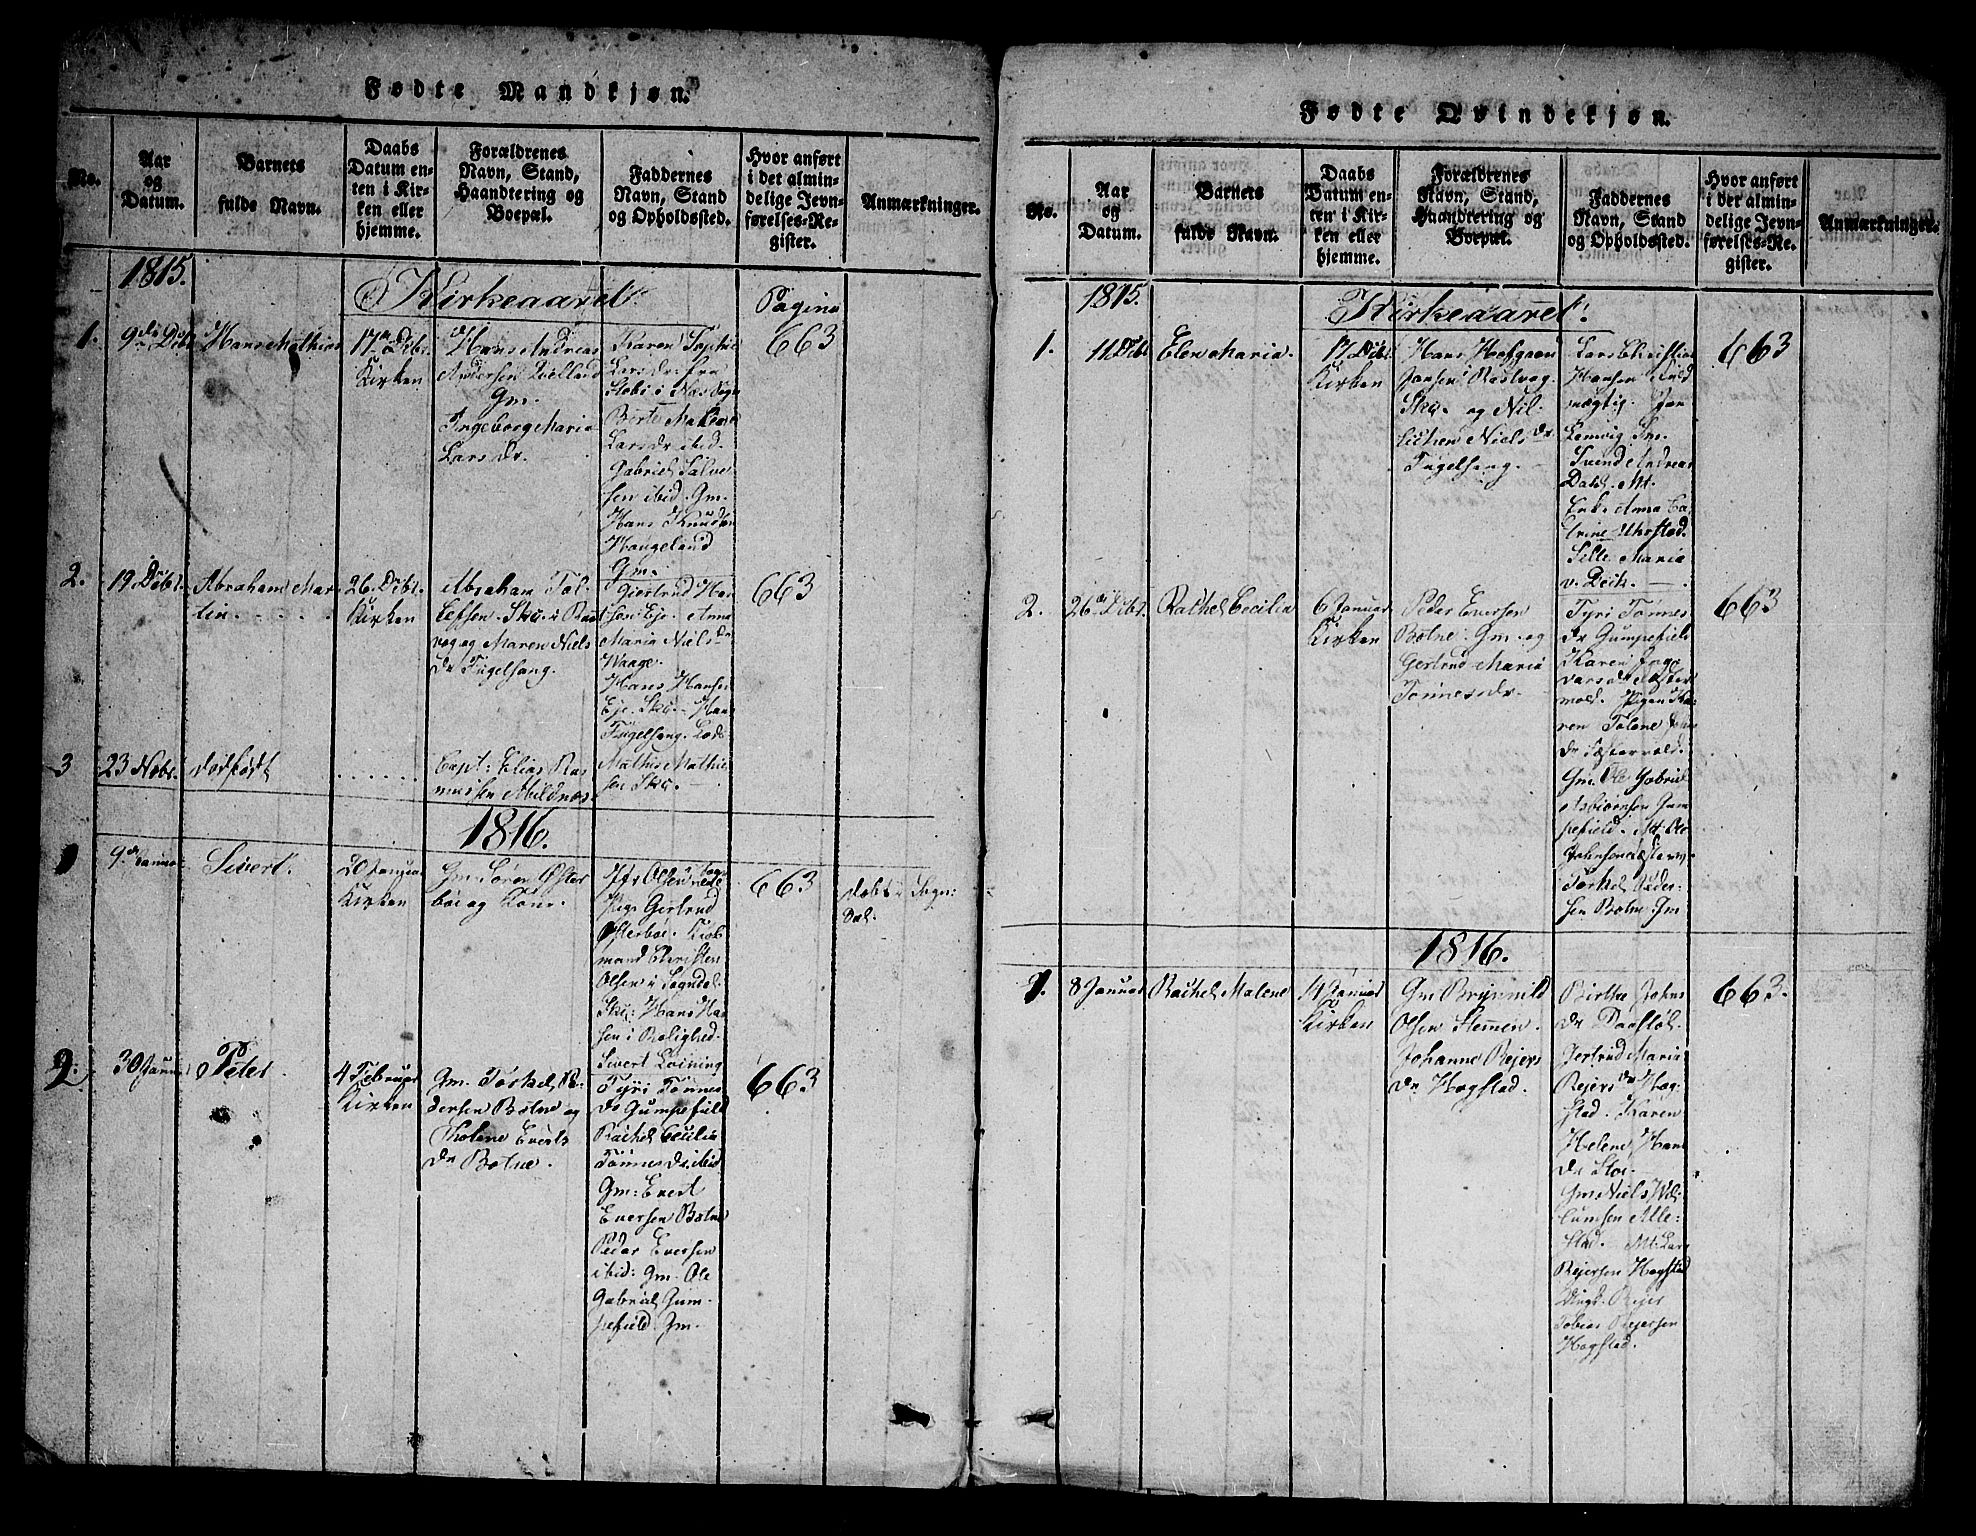 Fødte Mandkjøn.
No.
Aar
og
Datum.
Barnets
fulde Navn.
Daabs
Datum en-
ten i Kir-
ken eller
hjemme.
Forældrenes
Navn, Stand,
Haandtering og
Boepæl.
Faddernes
Navn, Stand
og Opholdssted.
Hvor anført
i det almin-
delige Jevn-
førelses-Re-
gister.
Anmærkninger.
1815.
Kirkeaaret
Pagina
1.
9de Débr
Hans Mathias
17de Débr
Kirken
Hans Andreas
Andersen
Gm.
Ingeborg Maria
Lars dr.
Karen Sophie
Lars dr. fra
Birte
Lars dr. ibid.
Gabriel Salve-
sen ibid. Gm.
Hans Knudsen
Haugeland
Gm.
663
2.
19 Débr.
Abraham Mar-
tin.
26. Débr.
Kirken
Abraham Tol-
lefsen. Sku. i Rast
vog og Maren Niels
dr Fugelsang.
Giertrud Han-
sen Eje. Anna
Maria Niels dr
Waage.
Hans Hansen
Eje. Sku. Hans
Fugelsang. Lods
Mathis Mathie
sen Sku.
663
3
23 Nobr.
dødfødt
Capt: Elias Ras
mussen Abildnæs
1816.
1
9de Januar
Sivert.
20 Januar
Kirken
Gm. Sören Öster
böe og Kone.
Olsen
Pige Gertrud
Österböe. Kiöb
mand Christen
Olsen i Sogndal.
Sku: Hans Han
sen i Rolighed.
Sivert Loining
663
döbt i Sogn:
dal.
2.
30 Januar
Peter
4 Februar
Kirken
Gm. Torkel An
dersen Botne og
Tholene Everts
dr Botne.
Tyri Tönnes
dr Gumpefield
Rachel Cecilia
Tönnesdr. ibid
Gm: Evert
Eversen Botne
Peder Eversen
ibid: Gm. Ole
Gabriel Gum-
pefield. Gm.
663
Fødte Qvindekjøn.
No.
Aar
og
Datum.
Barnets
fulde Navn.
Daabs
Datum en-
ten i Kir-
ken eller
hjemme.
Forældrenes
Navn, Stand,
Haandtering og
Boepæl.
Faddernes
Navn, Stand
og Opholdssted.
Hvor anført
i der almin-
delige Jevn-
førelses-Re-
gister.
Anmærkninger.
1815.
Kirkeaaret.
1.
11 Débr
Elen Maria.
17 Débr
Kirken
Hans
Jansen Rastvog
Sku. og Nil-
Niels dr
Fugelsang.
Lars Christian
Hansen Fuld
mægtig. Jan
Svend Andreas
Dahl. Mt.
Enke Anna Ca
trine
Sille Maria
663
2.
26de Débr.
Rachel Cecilia
6 Januar
Kirken
Peder Eversen
Botne. Gm. og
Gertrud Maria
Tönnesdr.
Tyri Tönnes
dr Gumpefield
Karen
Pigen Ka-
ren Tolene
Gm. Ole Gabriel
Gum
pefield. Mt. Ole
Torkel Ander-
sen Botne. Gm
663
1816.
1.
8 Januar
Rachel Malene
14 Januar
Kirken
Gm Brynnild
Olsen Stemmen.
Johanne Rejers
dr Hogstad.
Birthe Johns
dr
Gertrud Maria
Rejers dr Hog
stad. Karen
Helene Hans
dr
Gm Niels Wil
lumsen Alle-
stad. Mt. Lars
Rejersen Hogstad
Tobias Rejersen
Hogstad.
663.